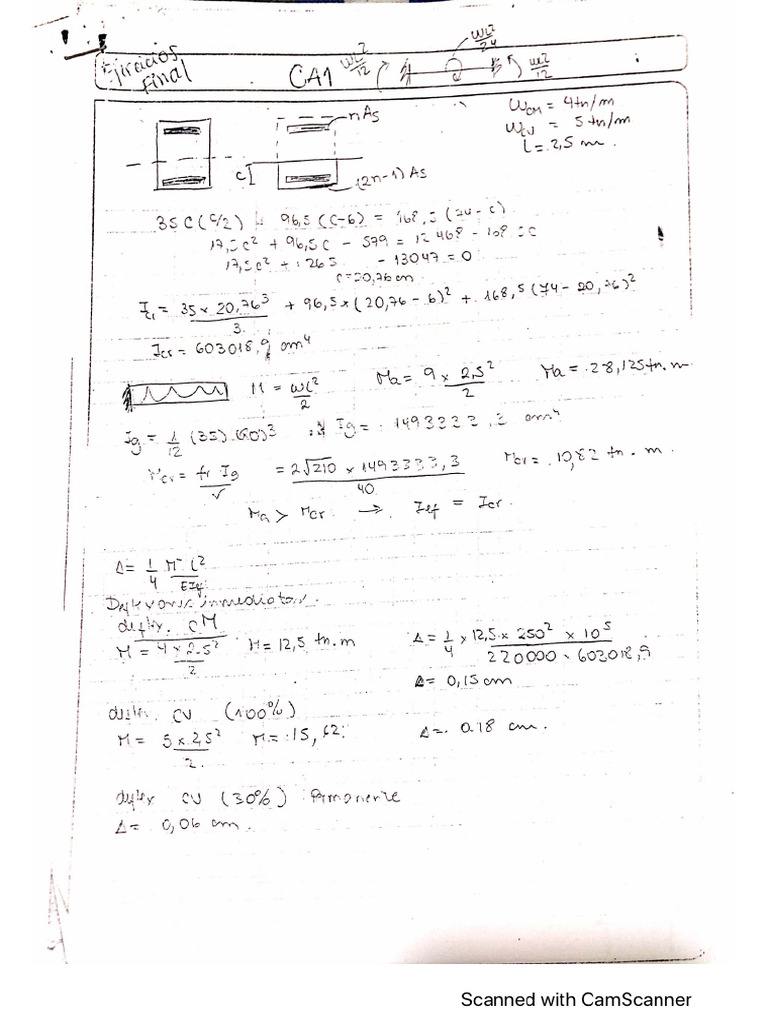 Ejercicios
Final
CA1
wl²/12
wl²/24
wl²/12
nAs
(2n-1) As
c
Wcm = 4tn/m
Wcv = 5tn/m
L = 2,5 m.
35C (c/2) + 96,5 (c-6) = 168,5 (74-c)
17,5c² + 96,5c - 579 = 12468 - 168,5c
17,5c² + 265 - 13047 = 0
c = 20,76 cm
Icr = 35 x 20,76³/3 + 96,5 x (20,76 - 6)² + 168,5 (74 - 20,76)²
Icr = 603018,9 cm⁴
M = wl²/2
Ma = 9 x 2,5²/2
Ma = 28,125 tn.m
Ig = 1/12 (35).(80)³
Ig = 1493333,3 cm⁴
Mcr = fr Ig/r = 2√210 x 1493333,3/40
Mcr = 10,82 tn.m
Ma > Mcr → Ief = Icr.
Δ = 1/4 M⁻ L²/EIef
deflex. CM
M = 4 x 2.5²/2
M = 12,5 tn.m
Δ = 1/4 x 12,5 x 250² x 10⁵/220000 x 603018,9
Δ = 0,15 cm
deflex. CV (100%)
M = 5 x 2,5²/2.
M = 15,62
Δ = 0.18 cm.
deflex CV (30%) Permanente
Δ = 0,06 cm.
Scanned with CamScanner